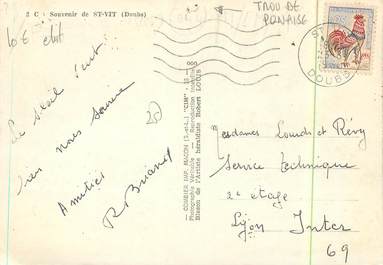 2 C - Souvenir de ST-VIT (Doubs)
TROU DE
PUNAISE
10€
Le Soleil
bien nous
Amitiés
R Briand
20
000
COMBIER IMP. MACON (S.-&-L.) "CIM"
Photographie Véritable - Reproduction Interdite
Blason de l'Artiste héraldiste Robert LOUIS
ST
DOUBS
Mesdames Lourds et Rémy
Service technique
2e étage
Lyon Inter
69